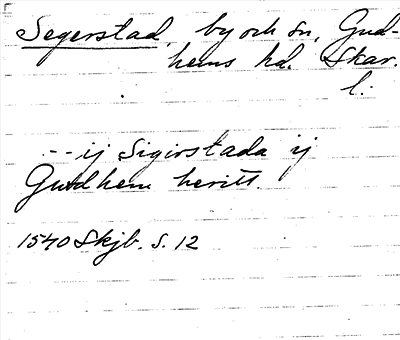 Segerstad, by och sn, Gud-
hems hd. Skar.
l.
--- ij Sigirstada ij
Gudhem heritt.
1540 Skjb. s. 12